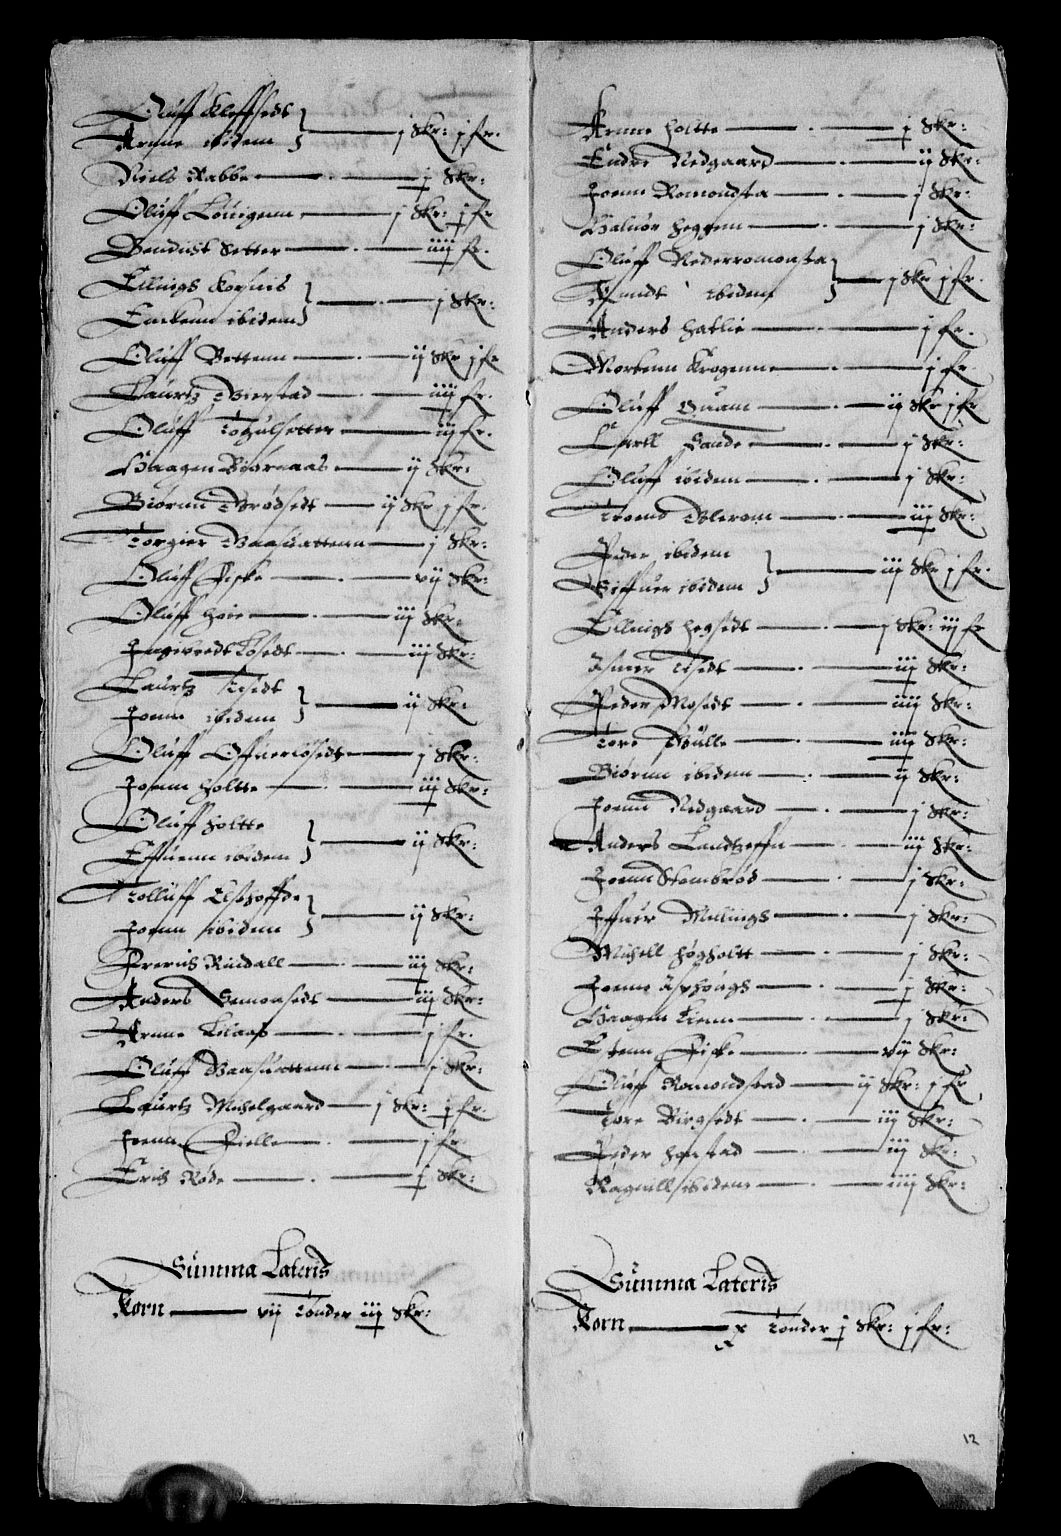 Oluff Kleffsedt
Arnne ibidem } j Skr: j fr.
Niels Rabbe j Skr:
Oluff Louigenn j Skr: j fr
Bendicht Setter iiij fr.
Ellings
Enckenn ibidem } j Skr:
Oluff Bettenn ij Skr j fr
Laurtz Bierstad iiij fr.
Oluff iij fr.
Haagen Biørnaas ij Skr:
Biörnn Brödsedt ij Skr j fr.
Torgier Baasuattenn j Skr:
Oluff Fiske vij Skr:
Oluff Hoie iij Skr:
Ingwordt Losedt iij Skr:
Laurtz Tosedt
Joenn ibidem } ij Skr:
Oluff j Skr:
Joenn Holtte iij Skr:
Oluff Holtte
Effuenn ibidem } ij Skr:
Tolluff
Joenn ibidem } ij Skr:
Frerich Rindall iij Skr:
Anders Semonsedt iij Skr:
Arnne j fr.
Oluff Baasuattenn j Skr:
Laurtz Michelgaard j Skr: j fr.
Joenn Fielle j fr.
Erich Røde j Skr:
Summa Lateris
Korn vij Tønder iij Skr:
Arnne Holtte j Skr:
Endre Nedgaard ij Skr:
Joenn Romondsta j Skr:
Haluor Heggem j Skr:
Oluff Nederromonsta
Amundt ibidem } j Skr j fr.
Anders Hatlie j fr.
Mortenn Krogenn j fr.
Oluff Quam ij Skr j fr
Carll Sande j Skr:
Oluff ibidem j Skr:
Troend iij Skr:
Peder ibidem
Siffuer ibidem } iij Skr j fr.
Ellings Hegsedt j Skr: iij fr
Asmer Tosedt iij Skr:
Peder Mosedt iiij Skr:
Tore iiij Skr:
Biörnn ibidem ij Skr:
Joenn Nedgaard j Skr:
Anders iij Skr:
Joenn Stombrød j Skr:
Iffuer Mellings j Skr:
Michell Høgholtt j Skr:
Joenn Asphougs j Skr:
Haagen Lienn j Skr:
Estenn Fiske vij Skr:
Oluff Romondstad ij Skr: j fr
Tore Biegsedt iij Skr:
Peder Harstad iij Skr:
Ragnill ibidem iiij Skr:
Summa Lateris
Korn x Tønder j Skr: j fr:
12